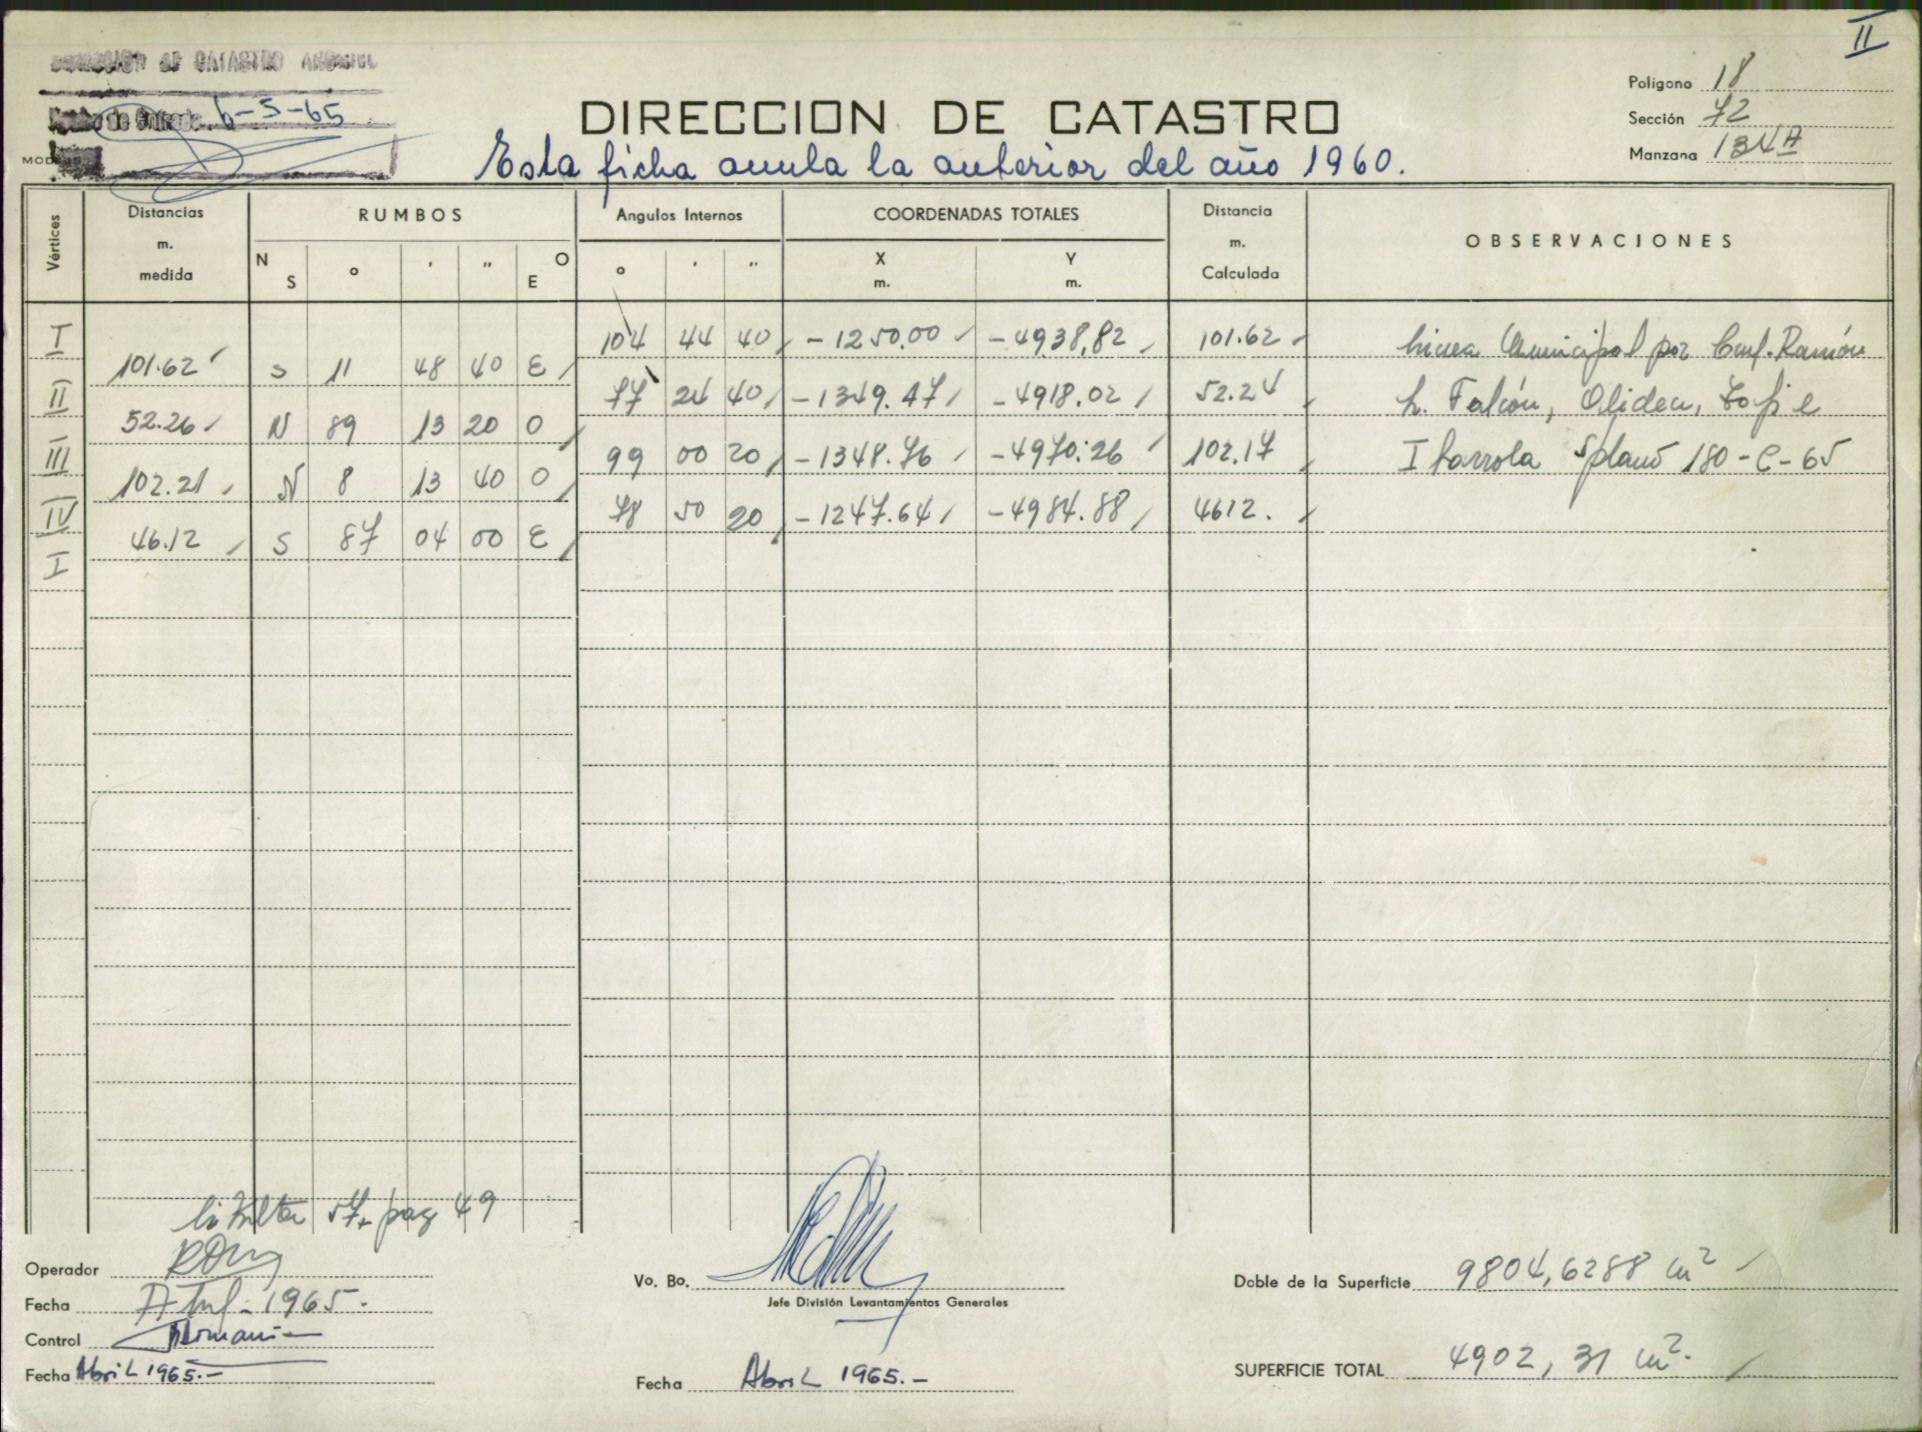 II
DIRECCION DE CATASTRO
6-5-65
DIRECCION DE CATASTRO
Esta ficha anula la anterior del año 1960.
Polígono 18
Sección 72
Manzana 134A
Vértices
Distancias m. medida
RUMBOS
N S ° ' " O E
Angulos Internos
° ' "
COORDENADAS TOTALES
X m. Y m.
Distancia m. Calculada
OBSERVACIONES
I 104 44 40 -1250.00 -4938,82 101.62 Linea Municipal por Ramón
101.62 S 11 48 40 E
II 77 24 40 -1349.47 -4918.02 52.24 L. Falcón, Oliden,
52.26 N 89 13 20 O
III 99 00 20 -1348.76 -4970.26 102.17 Ibarrola 180-C-65
102.21 N 8 13 40 O
IV 78 50 20 -1247.64 -4984.88 4612.
46.12 S 87 04 00 E
I
57, pag 49
Operador
Fecha 1965.
Control
Fecha Abril 1965.-
Vo. Bo.
Jefe División Levantamientos Generales
Fecha Abril 1965.-
Doble de la Superficie 9804,6288 m²
SUPERFICIE TOTAL 4902,31 m².